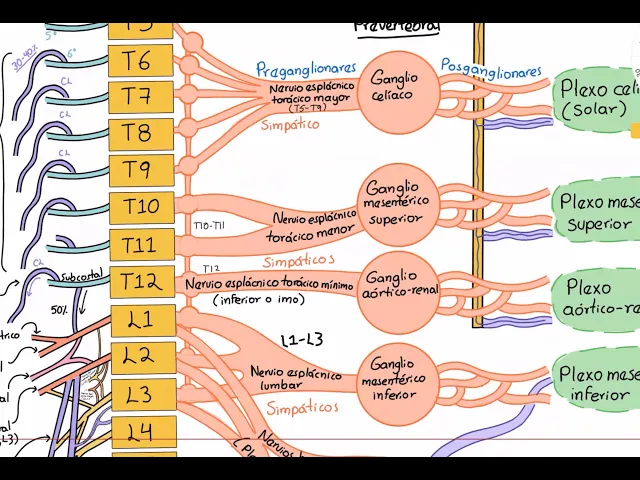 Prevertebral
T5
5°
T6
30-40%
6°
CL
T7
CL
T8
CL
T9
T10
T11
CL
Subcostal
T12
50%
L1
L2
L3
L4
Preganglionares
Nervio esplácnico
torácico mayor
(T5-T9)
Simpático
Ganglio
celíaco
Posganglionares
Plexo celí
(Solar)
T10-T11
Nervio esplácnico
torácico menor
Simpáticos
Ganglio
mesentérico
superior
Plexo mese
Superior
T12
Nervio esplácnico torácico mínimo
(inferior o imo)
Ganglio
aórtico-renal
Plexo
aórtico-re
L1-L3
Nervio esplácnico
lumbar
Simpáticos
Ganglio
mesentérico
inferior
Plexo mese
inferior
Nervios
(Ple
trico
al
L3)